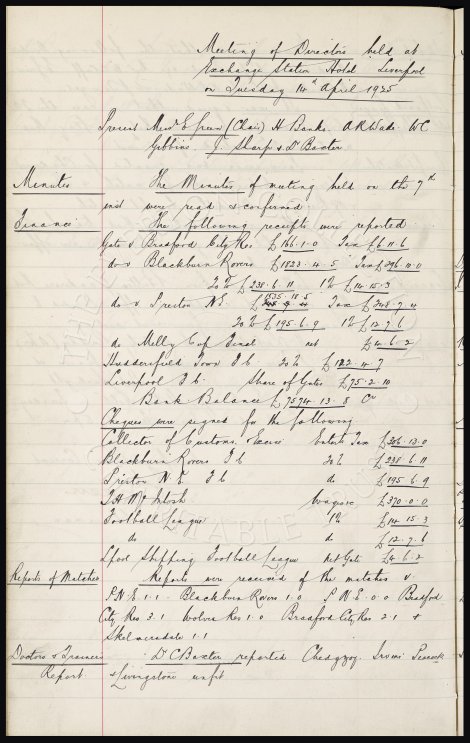 Meeting of Directors held at
Exchange Station Hotel Liverpool
on Tuesday 14th April 1925
Present Messrs E Green (Chair) H Banks. A R Wade. W C
Gibbins J. Sharp & Dr Baxter
Minutes The Minutes of meeting held on the 7th
inst were read & confirmed
Finance The following receipts were reported
Gate v Bradford City Res £166.1.0 Tax £6.11.6
do v Blackburn Rovers £1823.4.5 Tax £296.11.0
20% £238.6.11 1% £14.15.3
do v Preston N.E. £1535.18.5 Tax £248.7.4
20% £195.6.9 1% £12.7.6
do Cup Final net £4.6.2
Huddersfield Town F.C. 20% £122.4.7
Liverpool F.C. Share of Gates £75.2.10
Bank Balance £7574.13.8 Cr
Cheques were signed for the following
Collector of Customs & Excise Entertts Tax £306.13.0
Blackburn Rovers F C 20% £238.6.11
Preston N.E. F.C do £195.6.9
T.H. McIntosh Wages £370.0.0
Football League 1% £14.15.3
do do £12.7.6
Lpool Shipping Football League net Gate £4.6.2
Reports of Matches Reports were received of the matches v
P.N.E 1.1 - Blackburn Rovers 1.0 P.N.E. 0.0 Bradford
City Res 3.1 Wolves Res 1.0 Bradford City Res 2.1 &
Skelmersdale 1.1
Doctors & Trainers Dr C Baxter reported Chedgzoy. Irvine Peacock
Report. & Livingstone unfit